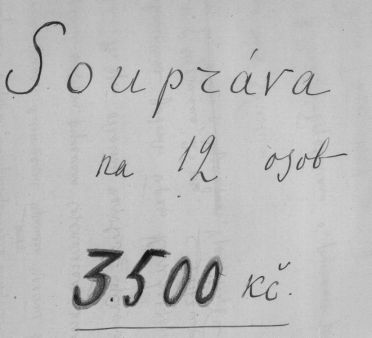 Soupráva
na 12 osob
3.500 kč.